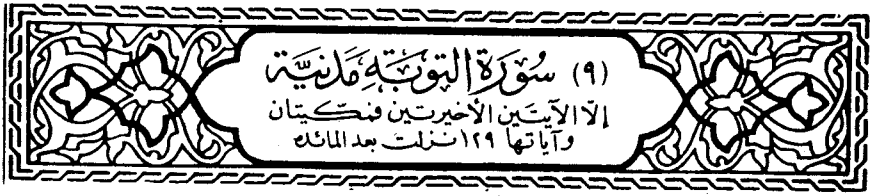 (٩) سُورَةُ التوبَةِ مَدَنيَّة
إلّا الآيتَين الأخيرتين فمكيّتان
وآياتها ١٢٩ نزلت بعد المائدة